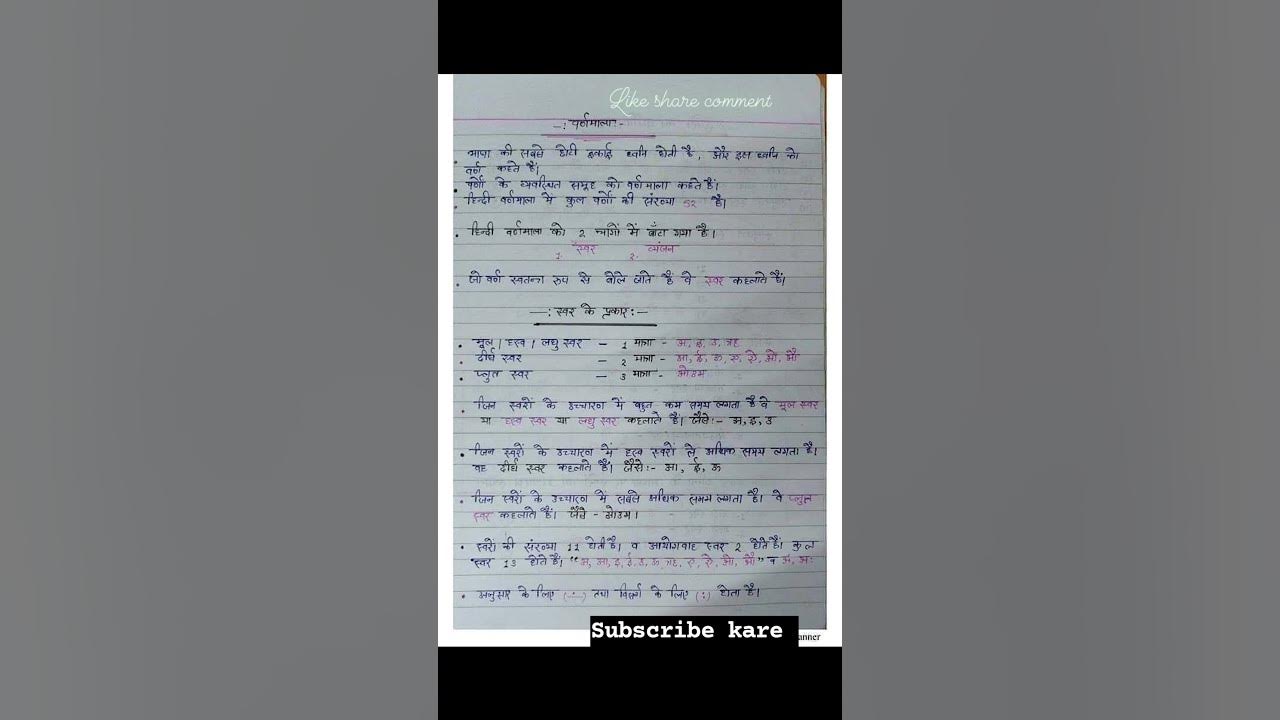 Like share comment
-: वर्णमाला:-
भाषा की सबसे छोटी इकाई ध्वनि होती है, और इस ध्वनि को
वर्ण कहते हैं।
वर्णों के व्यवस्थित समूह को वर्णमाला कहते हैं।
हिन्दी वर्णमाला में कुल वर्णों की संख्या 52 है।
हिन्दी वर्णमाला को 2 भागों में बाँटा गया है।
1. स्वर 2. व्यंजन
जो वर्ण स्वतन्त्र रूप से बोले जाते हैं वे स्वर कहलाते हैं।
-: स्वर के प्रकार:-
मूल / ह्रस्व / लघु स्वर - 1 मात्रा - अ, इ, उ, ऋ
दीर्घ स्वर - 2 मात्रा - आ, ई, ऊ, ए, ऐ, ओ, औ
प्लुत स्वर - 3 मात्रा - ओउम
जिन स्वरों के उच्चारण में बहुत कम समय लगता है वे मूल स्वर
या ह्रस्व स्वर या लघु स्वर कहलाते हैं। जैसे:- अ, इ, उ
जिन स्वरों के उच्चारण में ह्रस्व स्वरों से अधिक समय लगता है।
वह दीर्घ स्वर कहलाते हैं। जैसे:- आ, ई, ऊ
जिन स्वरों के उच्चारण में सबसे अधिक समय लगता है। वे प्लुत
स्वर कहलाते हैं। जैसे - ओउम।
स्वरों की संख्या 11 होती है। व आयोगवाह स्वर 2 होते हैं। कुल
स्वर 13 होते हैं। "अ, आ, इ, ई, उ, ऊ, ऋ, ए, ऐ, ओ, औ" व अं, अः
अनुसार के लिए (ं) तथा विसर्ग के लिए (:) होता है।
Subscribe kare
anner